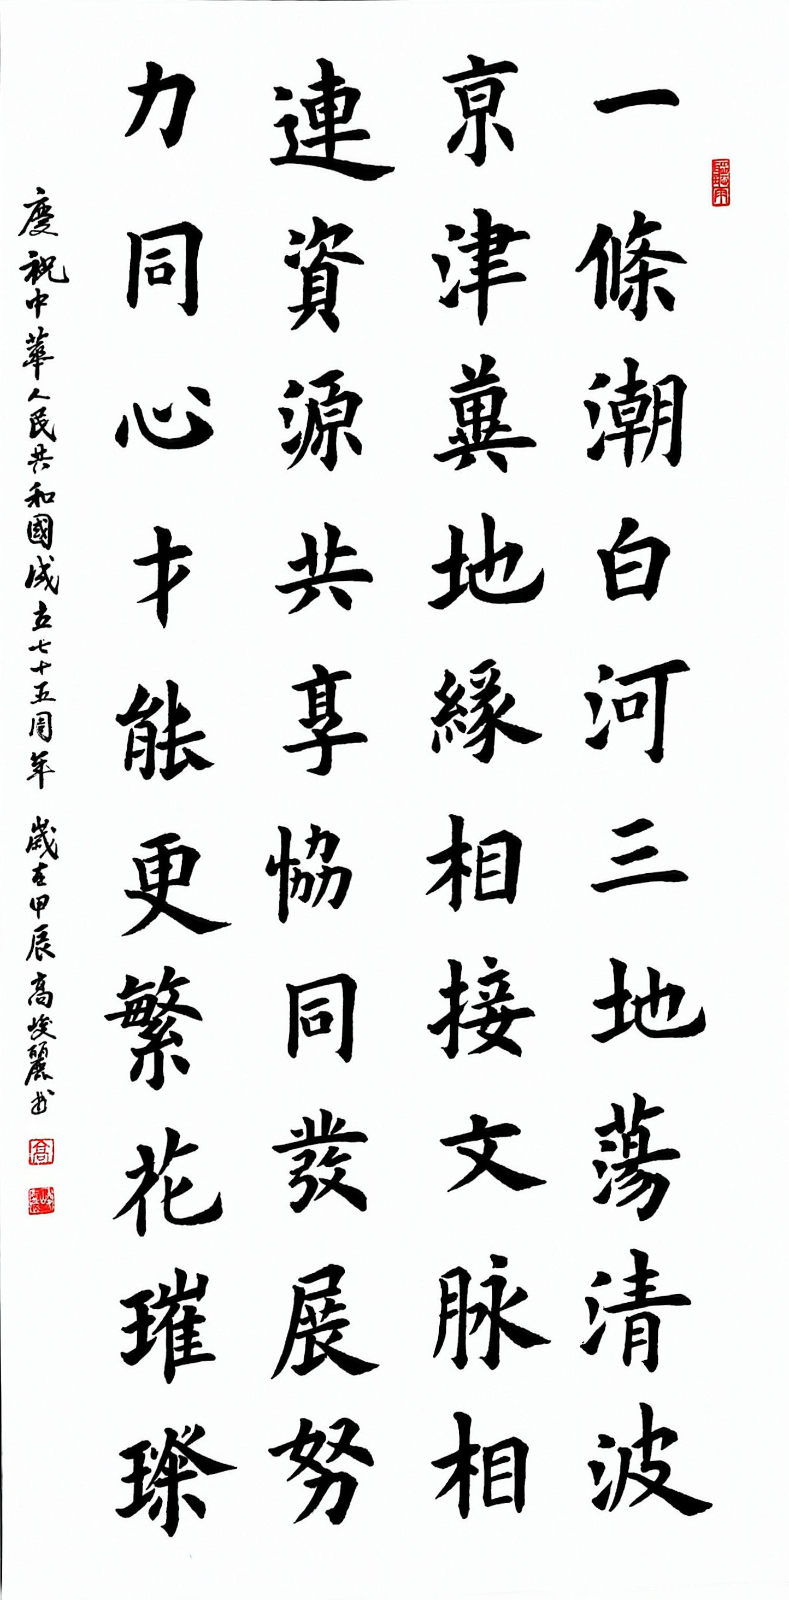 一條潮白河三地蕩清波
京津冀地緣相接文脉相
連資源共享恊同發展努
力同心才能更繁花璀璨
慶祝中華人民共和國成立七十五周年 歲在甲辰高峻麗书
高